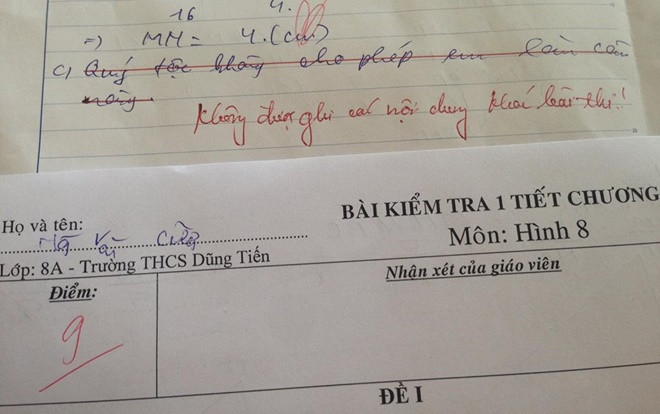 16 4.
=) MN = 4.(cm)
c) Quý tộc không cho phép em làm câu
này.
Không được ghi các nội dung khác bài thi!
BÀI KIỂM TRA 1 TIẾT CHƯƠNG
Họ và tên:
Văn
Môn: Hình 8
Lớp: 8A - Trường THCS Dũng Tiến
Điểm:
Nhận xét của giáo viên
9
ĐỀ I